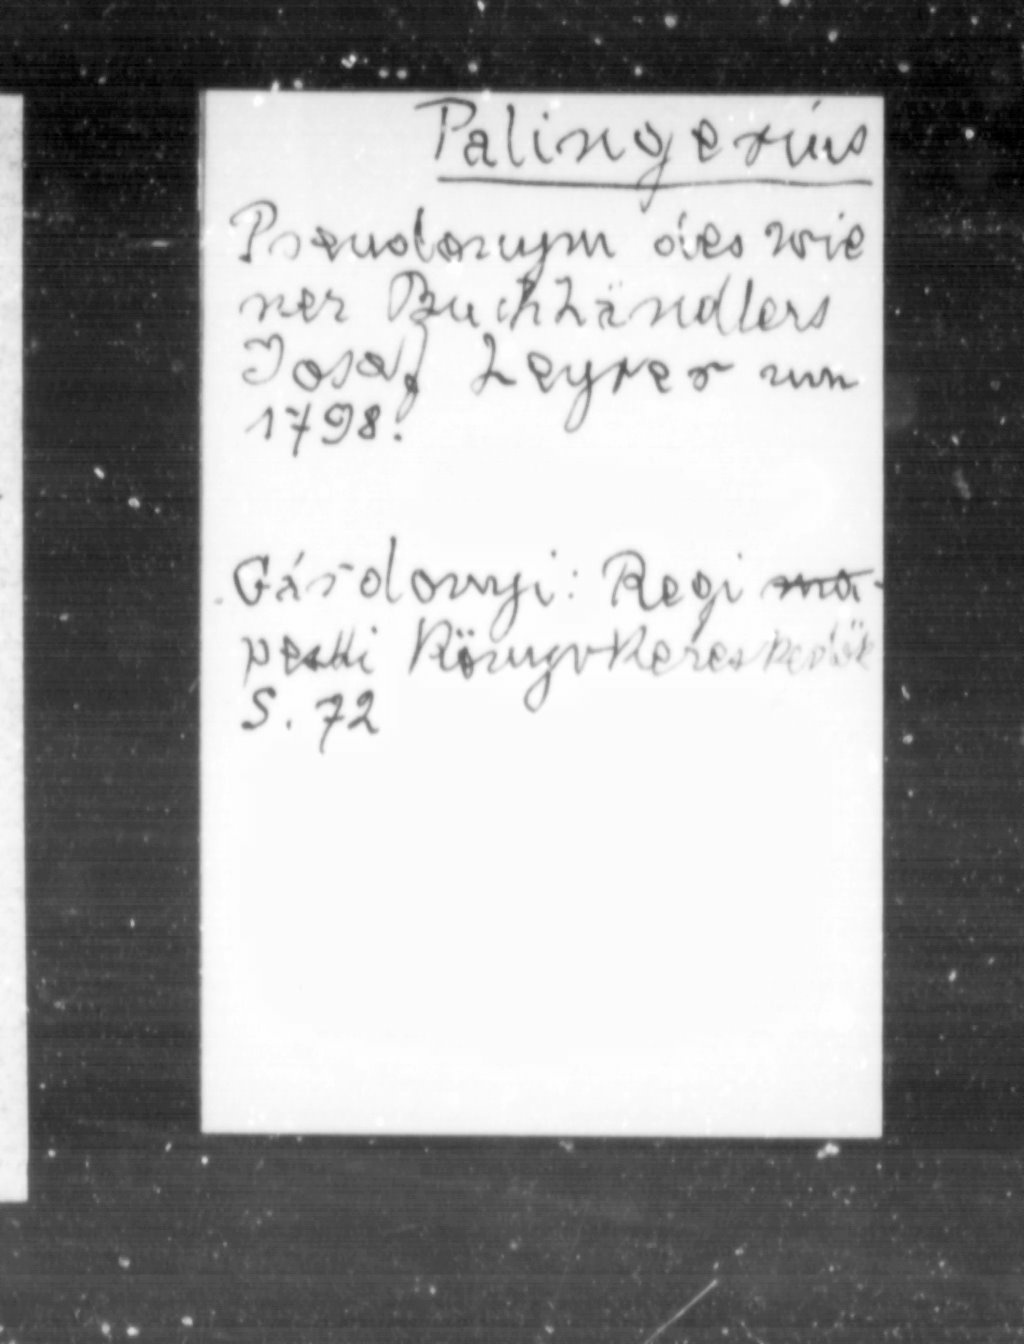 Palingerius
Pseudonym des wie
ner Buchhändlers
Josef Leyrer um
1798.
Gárdonyi: Regi ma-
pesti Könyvkereskedök
S. 72